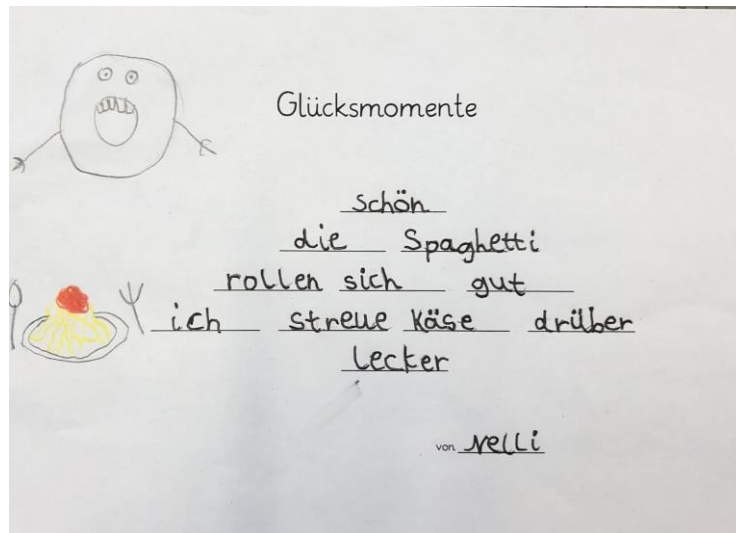 Glücksmomente
schön
die Spaghetti
rollen sich gut
ich streue Käse drüber
lecker
von Nelli